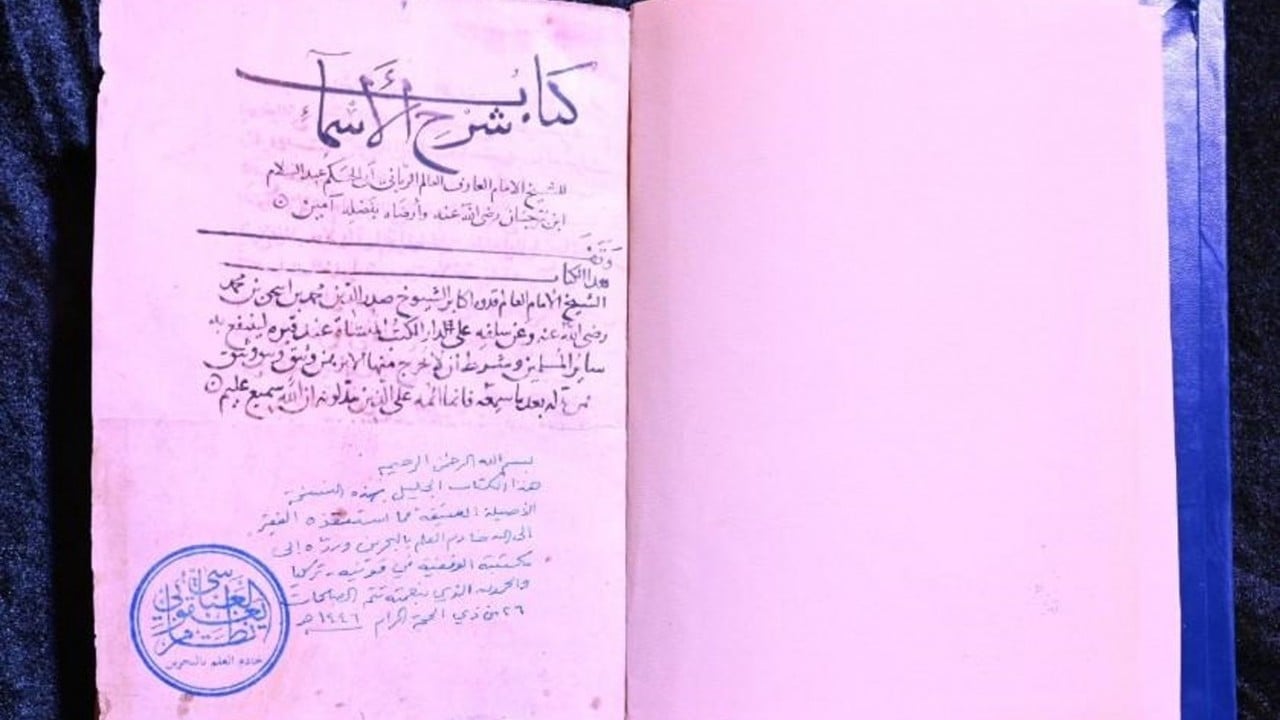 كتاب شرح الأسماء
للشيخ الامام العارف العالم الرباني ابى الحكم عبد السلام
ابن برجان رضى الله عنه وأرضاه بفضله آمين
وقف
هذا الكتاب
الشيخ الامام العالم قدوة اكابر الشيوخ صدر الدين محمد بن اسحق بن محمد
رضى الله عنه وعن سلفه على دار الكتب المنشاة عند قبره لينتفع به
سائر المسلمين وشرط ان لا يخرج منها الا برهن وثيق
بعد ما سمعه فانما اثمه على الذين يبدلونه ان الله سميع عليم
بسم الله الرحمن الرحيم
هذا الكتاب الجليل بهذه النسخة
الأصيلة العتيقة مما استنقذه الفقير
إلى الله خادم العلم بالبحرين ورده إلى
مكتبته الوقفية في قونية - تركيا
والحمد لله الذي بنعمته تتم الصالحات
٢٦ من ذي الحجة الحرام ١٤٤٦ هـ
نظام يعقوبي العباسي
خادم العلم بالبحرين